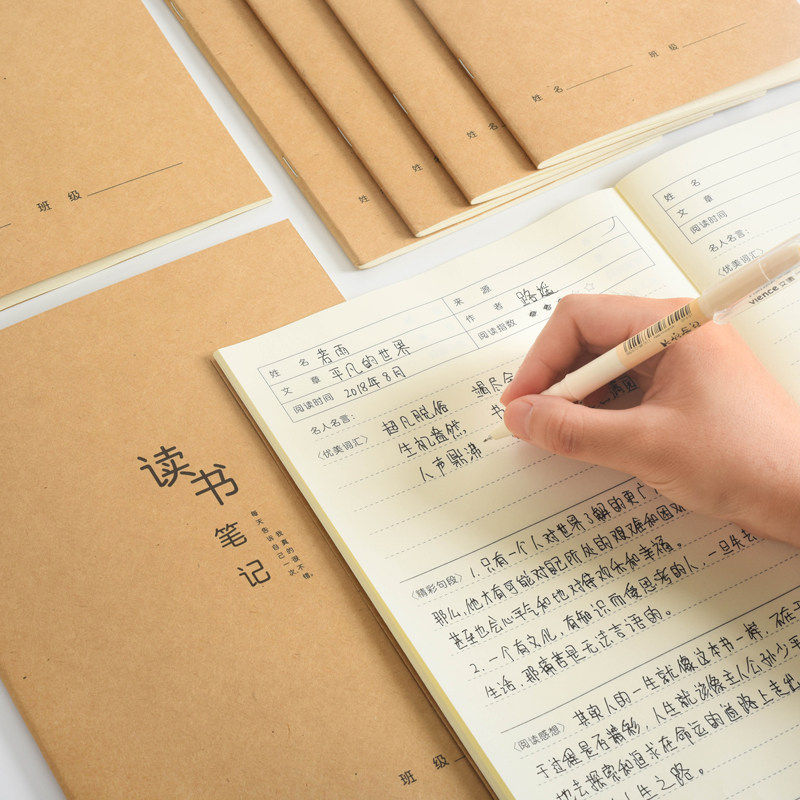 班 级
姓
姓
姓 名
姓 名
班 级
读书
笔
记
每天告诉自己一次，
我真的很不错。
班 级
姓 名 若雨
文 章 平凡的世界
阅读时间 2018年8月
来 源
作 者 路遥
阅读指数
名人名言：
《优美词汇》 超凡脱俗
生机盎然，书
人声鼎沸
《精彩句段》 1.只有一个人对世界了解的更广
那么，他才有可能对自己所处的艰难和困
甚至也会心平气和地对待欢乐和幸福。
2.一个有文化，有知识而使思考的人，一旦失去
生活，那痛苦是无法言语的。
《阅读感想》 其实人的一生就像这本书一样，不在于
于过程是否精彩，人生就该像主人公孙少平
地去探索和追求在命运的道路上走出
人生之路。
姓 名
文 章
阅读时间
名人名言：
《优美词汇》
vience